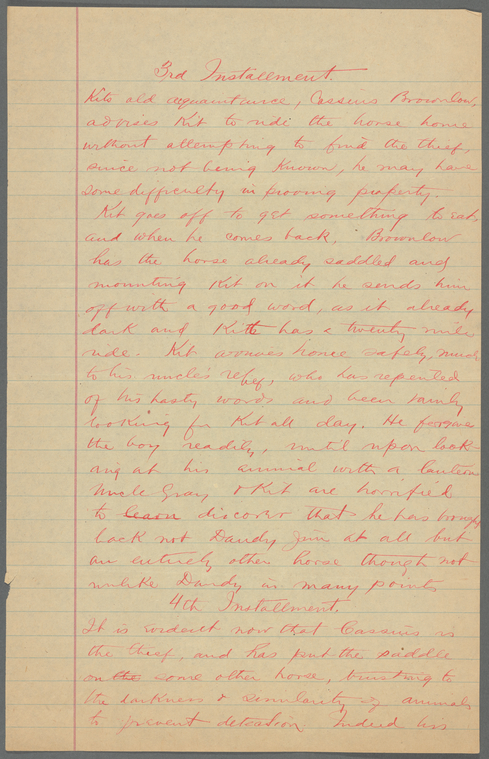 3rd Installment.
Kits old acquaintance, Cassius Brownlow,
advises Kit to ride the horse home
without attempting to find the thief,
since not being known, he may have
some difficulty in proving property.
Kit goes off to get something to eat,
and when he comes back, Brownlow
has the horse already saddled and
mounting Kit on it he sends him
off with a good word, as it already
dark and Kit has a twenty mile
ride. Kit arrives home safely, much
to his uncle's relief, who has repented
of his hasty words and been
looking for Kit all day. He forgives
the boy readily, until upon look-
ing at his animal with a lantern
Uncle Gray & Kit are horrified
to learn discover that he has brought
back not Dandy Jim at all but
an entirely other horse though not
unlike Dandy in many points
4th Installment.
It is evident now that Cassius is
the thief, and has put the saddle
on the some other horse, trusting to
the darkness & similarity of animals
to prevent detection. Indeed